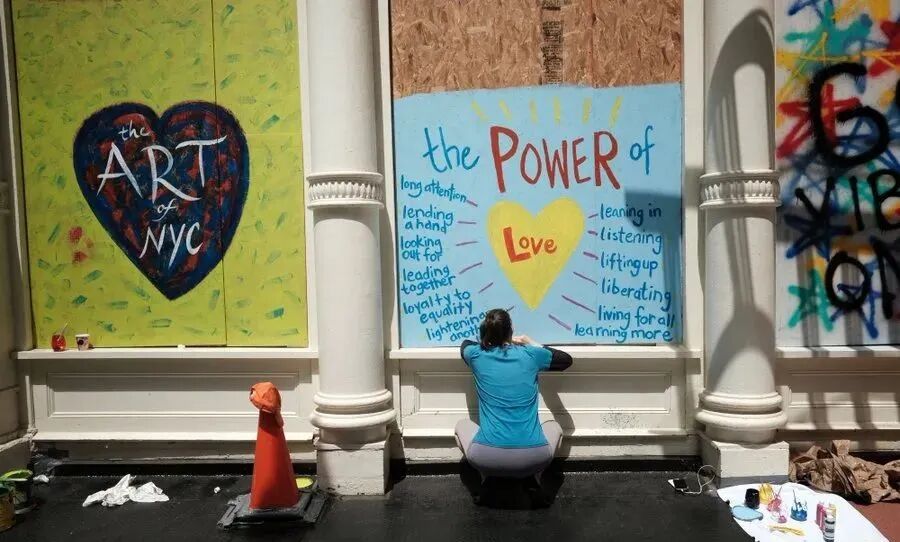 the
ART
of
NYC
the POWER of
long attention
lending
a hand
looking
out for
leading
together
loyalty to
equality
lightening
Love
leaning in
listening
lifting up
liberating
living for all
learning more